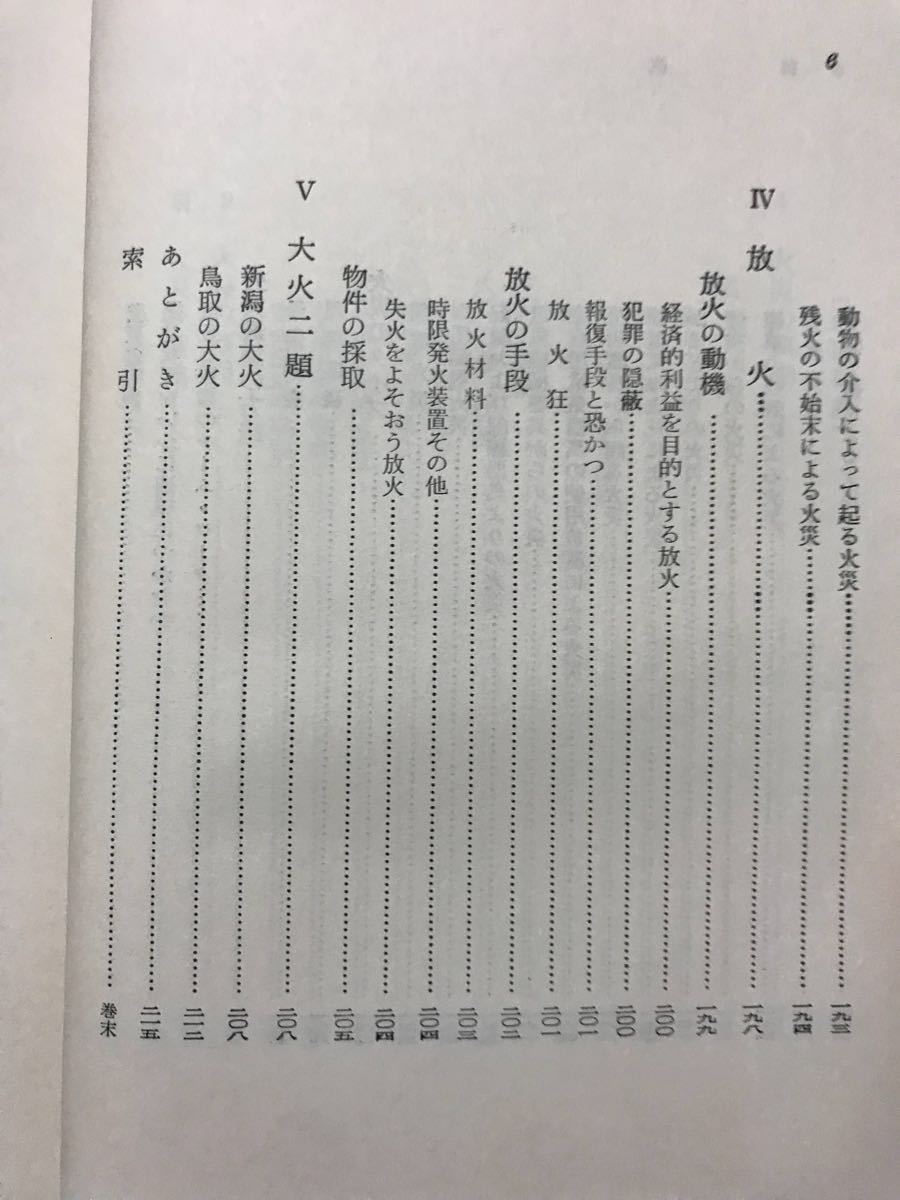 6
動物の介入によって起る火災……一九三
残火の不始末による火災……一九四
Ⅳ 放火……一九八
放火の動機……一九九
経済的利益を目的とする放火……二〇〇
犯罪の隠蔽……二〇〇
報復手段と恐かつ……二〇一
放火狂……二〇一
放火の手段……二〇二
放火材料……二〇三
時限発火装置その他……二〇四
失火をよそおう放火……二〇四
物件の採取……二〇五
Ⅴ 大火二題……二〇八
新潟の大火……二〇八
鳥取の大火……二一二
あとがき……二一五
索引……巻末